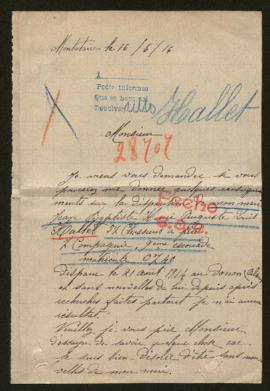 Montataire le 16/6/16
A
Pedir informes
Devolver
Hallet
Monsieur
28707
Je viens vous demander si vous
pourriez me donner quelques renseigne
ments sur la disparition de mon mari
Jean Baptiste Auguste Louis
Hallet Chasseurs à pied
Compagnie, 9ème escouade
matricule 0740
Disparu le 21 août 1914 au Donon
et sans nouvelles de lui depuis après
recherches faites partout je n'ai aucun
résultat
Veuillez, je vous prie Monsieur,
essayer de savoir quelque chose car
je suis bien désolée d'être sans nou
velles de mon mari.
Fiche